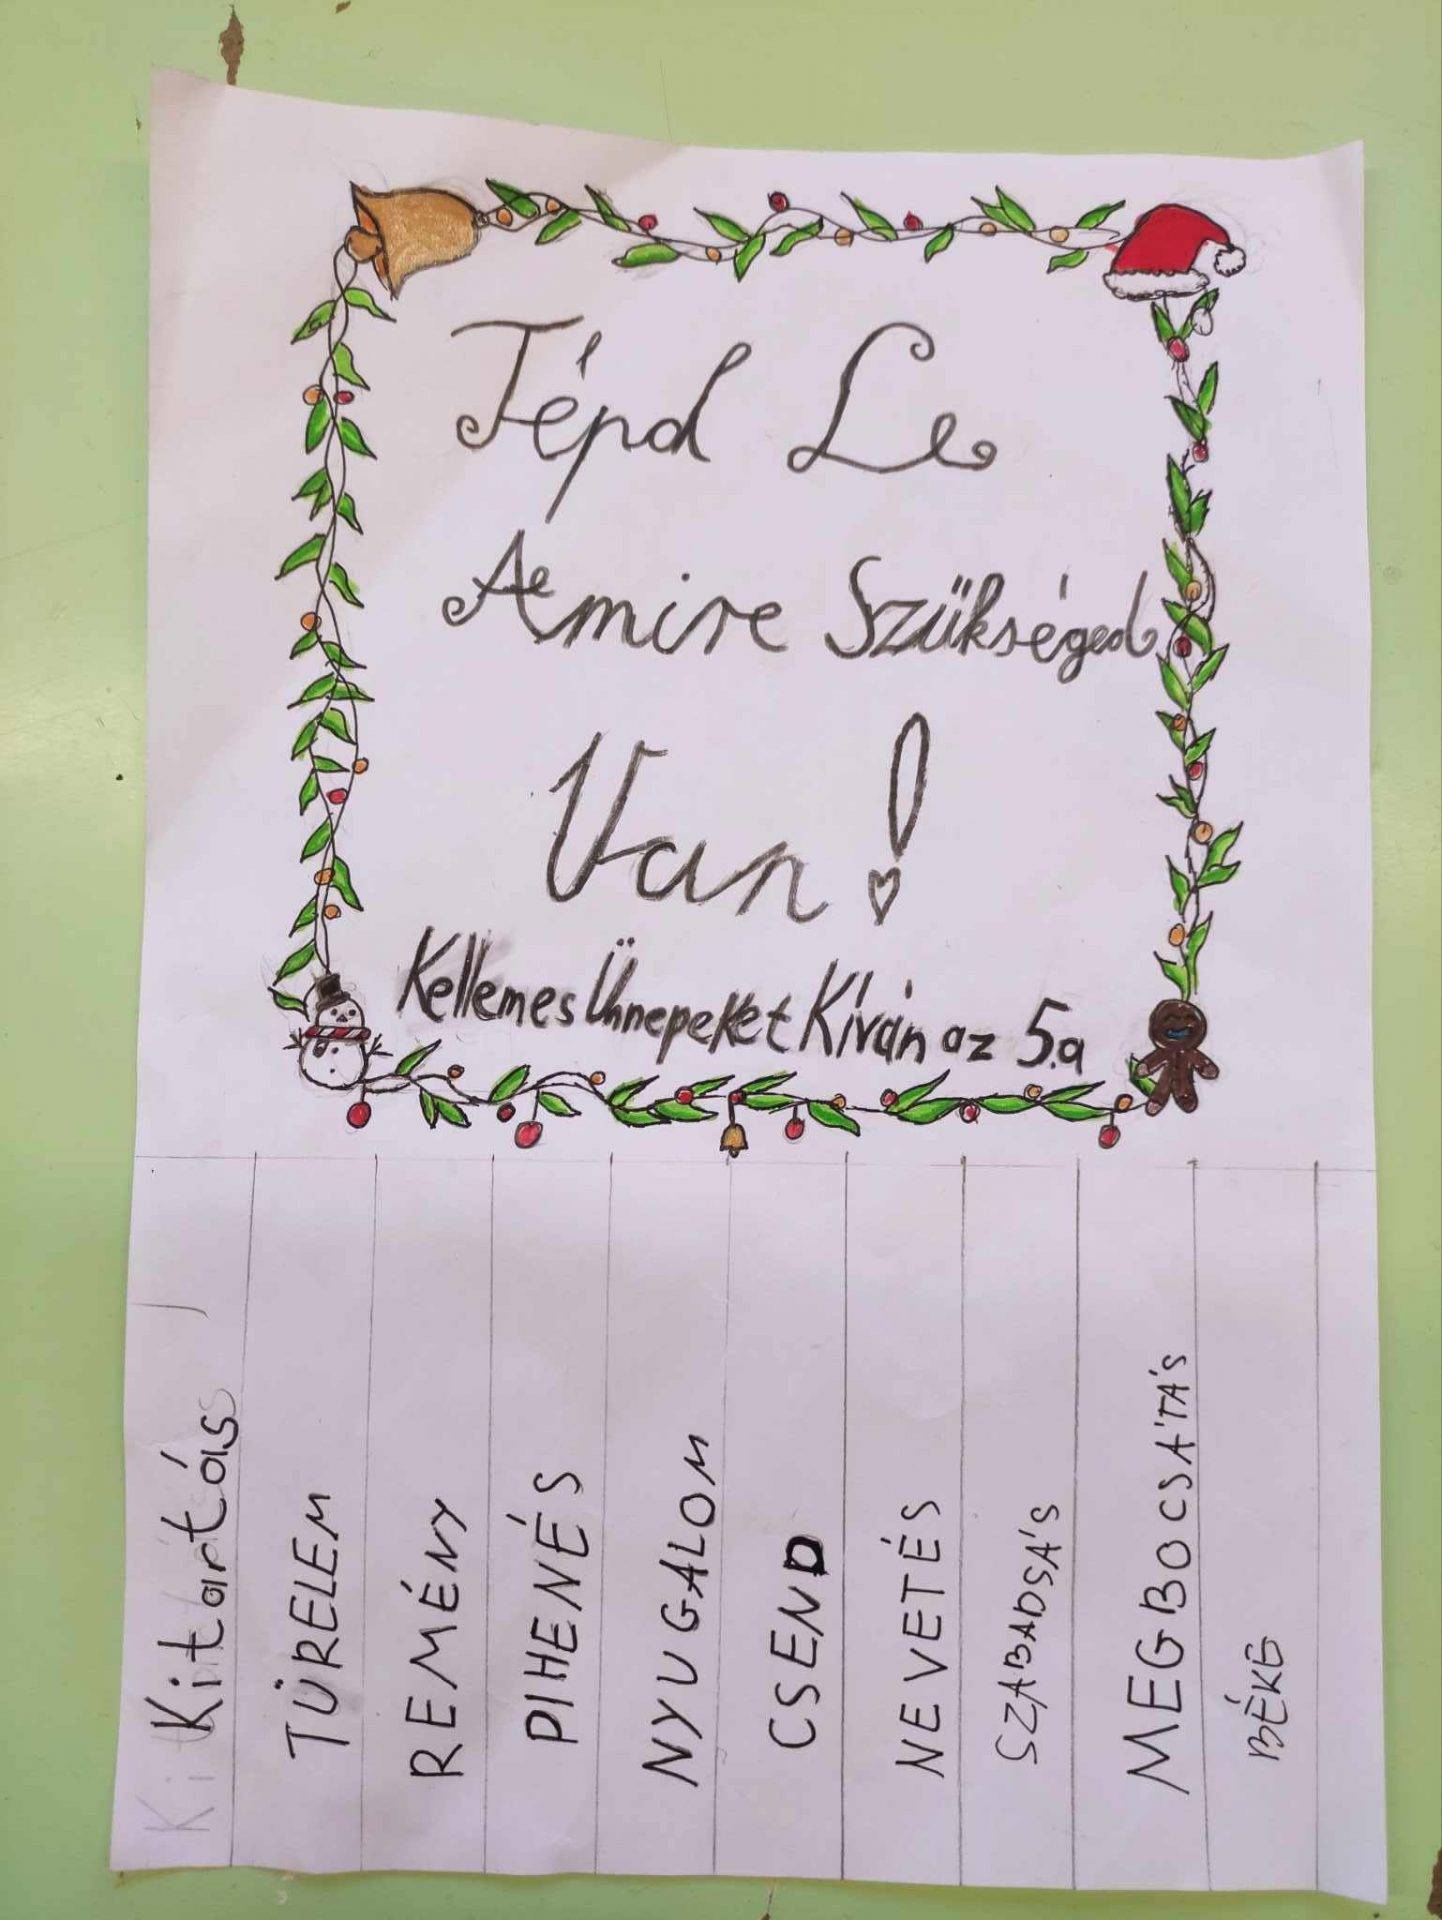 Tépd Le
Amire Szükséged
Van!
Kellemes Ünnepeket Kíván az 5.a
Kitartás
TÜRELEM
REMÉNY
PIHENÉS
NYUGALOM
CSEND
NEVETÉS
SZABADSÁ'S
MEGBOCSÁ'TÁ'S
BÉKE